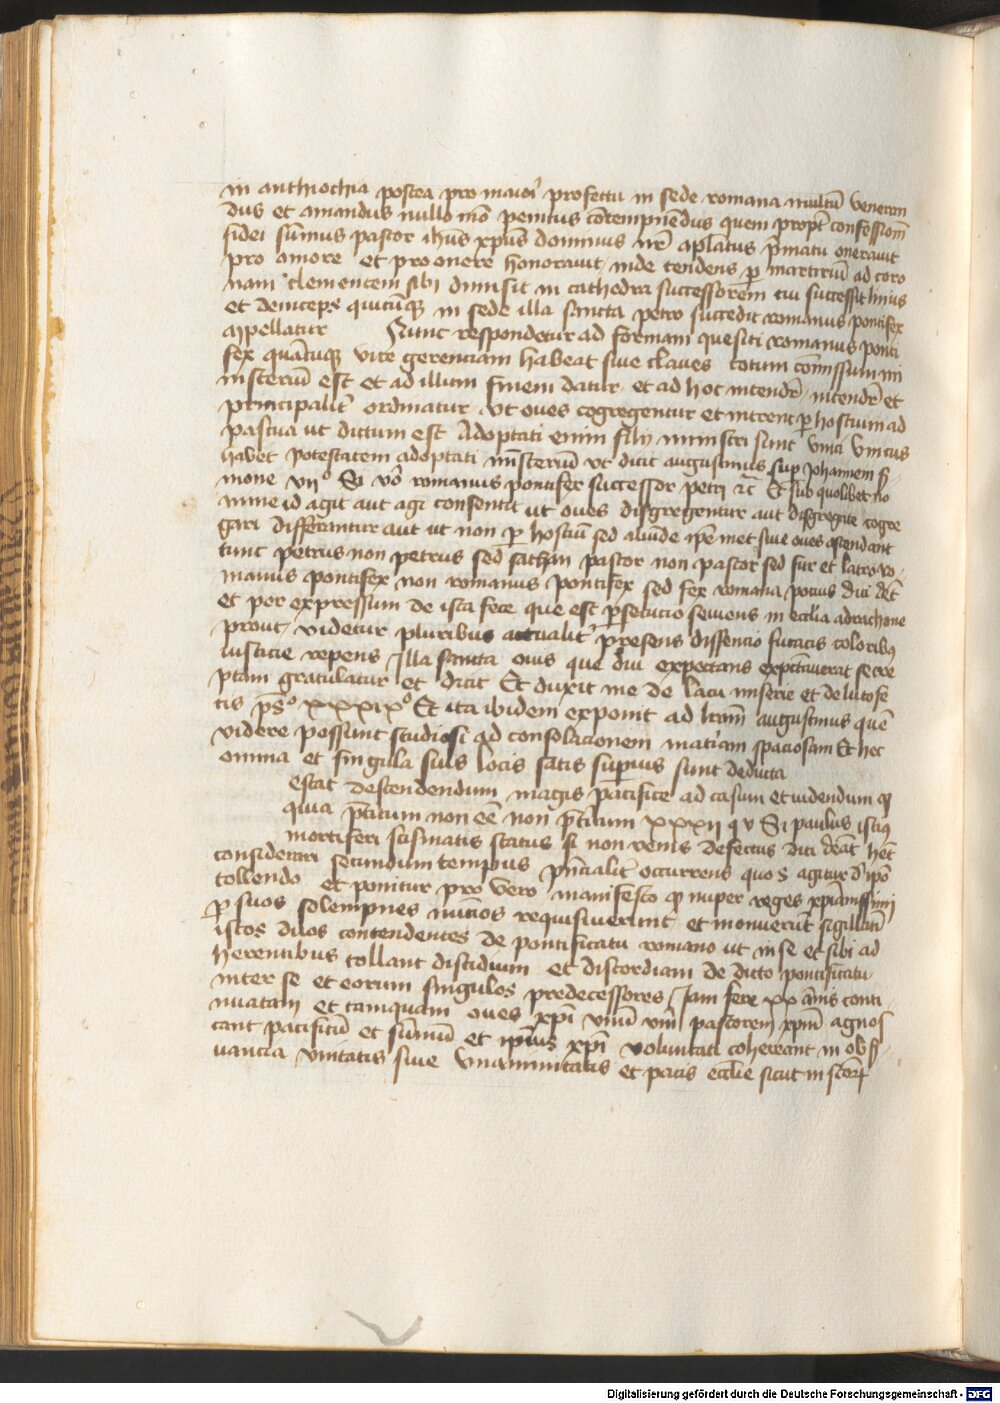 in anthiochia postea pro maiori profectu in sede romana multū veneran
dus et amandus nullo mō penitus cōtempnēdus quem propt̄ confessionē
fidei sūmus pastor ihūs xp̄us dominus nr̄e aplatus pͥmatu onerauit
pro amore et pro onere honorauit inde tendens p̱ martiriū ad coro
nam Clementem sibi dimisit in cathedra successorem cui successit linus
et deniceps quicūqꝫ in sede illa sancta petro succedit romanus pontifex
appellatur Nunc respondetur ad formam quesiti romanus ponti
fex quātūqꝫ vite gerenciam habeat siue claues totum cōmissum mi
nisteriū est et ad illum finem datur et ad hoc intendr̄ intendr̄ et
principalit̄ ordinatur vt oues cōgregentur et intrent p̱ hostium ad
pascua ut dictum est Adoptati enim filij ministri sunt vnici vnicus
habet potestatem adoptati mīsteriū vt dicit augustinus sup Johannem
mone viiº Si v̄o romanus pontifex successor petri ꝛc̄ Et sub quolibet no
mine id agit aut agi consentit ut oues disgregentur aut disgregate cōgre
gari differantur aut ut non p̱ hostiū sed aliūde ip̄emet siue oues ascendant
tunc petrus non petrus sed sathan pastor non pastor sed fur et latro ro
manus pontifex non romanus pontifex sed fex romana pocius dici deb̄t
et per expressum de ista fece que est p̱secucio seuiens in eccl̄ia a drachone
prout videtur pluribus actualit̄ presens dissencio fucatis coloribꝫ
iusticie repens Illa sancta ouis que diu expectans expectauerat se ere
ptam gratulatur et dicit Et duxit me de lacu miserie et de luto fe
tis ps̄º xxxixº Et ita ibidem exponit ad lr̄am augustinus quē
videre possunt studiosi ad consolacionem mat̄iam spaciosam Et hec
omnia et singula suis locis satis sup̄ius sunt deducta
estat descendendum magis pacifice ad casum et videndum qꝫ
quia pͥtitum non eē non pͥtitum xxxii q v Si paulus istiꝰ
mortiferi scismatis status si non veris defectus dici debeat het
considerari secundum tempus pn̄cialit̄ occurrens quo s agitur d ip̄o
tollendo et ponitur pro vero manifesto qꝫ nuper reges xp̄ianissimi
p̱ suos solempnes nūcios requisiuerunt et monuerūt sigillatī
istos duos contendentes de pontificatu romano ut in se et sibi ad
herentibus tollant discidium et discordiam de dicto pontificatu
inter se et eorum singulos predecessores Iam fere xx ānis conti
nuatam et tamquam oues xp̄i vnū vm̄ pastorem xp̄m agnos
cant pacificū et sūmū et ip̄ius xp̄i voluntati cohereant in obs̄
uancia vnitatis siue vnanimitatis et pacis eccl̄ie sicut in
Digitalisierung gefördert durch die Deutsche Forschungsgemeinschaft - DFG